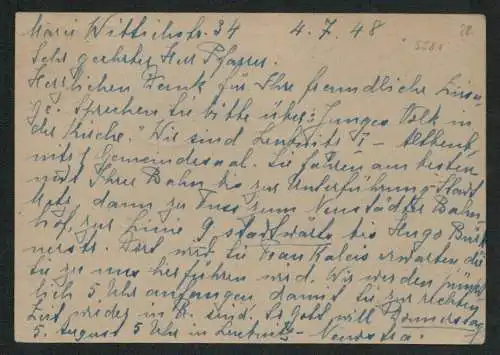 Marie Wittichstr. 34 4. 7. 48
Sehr geehrter Herr Pfarrer.
Herzlichen Dank für Ihre freundliche Zusa-
ge. Sprechen Sie bitte über: "Junges Volk in
der Kirche." Wir sind Leubnitz I -
mitz Gemeindesaal. Sie fahren am besten
mit Ihrer Bahn bis zur Unterführung Stadt
Metz, dann zu Fuss zum Neustädter Bahn-
hof zur Linie 9 stadtwärts bis Hugo Bürk-
nerstr. Dort wird Sie Frau Kalais erwarten die
Sie zu uns herführen wird. Wir werden pünkt-
lich 5 Uhr anfangen damit Sie zur rechten
Zeit wieder in R. sind. So Gott will Donnerstag
5. August 5 Uhr in Leubnitz - Neuostra.